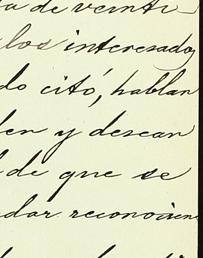 a de veinti
los interesados
do citó, hablan
den y desean
de que se
dar reconocien